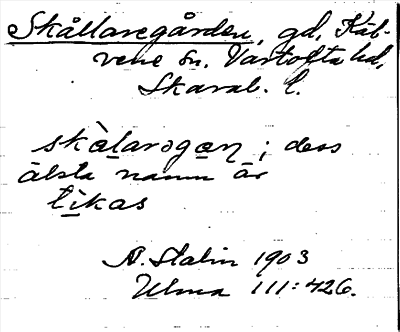 Skållaregården, gd, Käb-
vene sn. Vartofta hd,
Skarab. l.
skàlarəgaṇ; dess
älsta namn är
likas
A. Stalin 1903
Ulma 111:426.